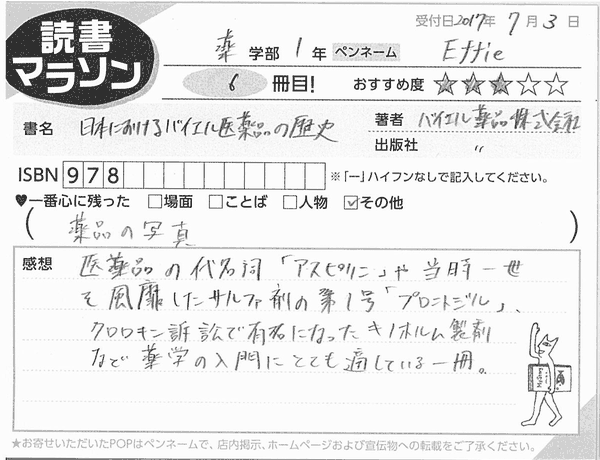 読書
マラソン
受付日2017年 7月 3日
薬 学部 1 年 ペンネーム Effie
6 冊目! おすすめ度 ★★★☆☆
書名 日本におけるバイエル医薬品の歴史
著者 バイエル薬品株式会社
出版社 〃
ISBN 978 ※「ー」ハイフンなしで記入してください。
♥一番心に残った □場面 □ことば □人物 ☑その他
(薬品の写真)
感想 医薬品の代名詞「アスピリン」や当時一世
を風靡したサルファ剤の第1号「プロントジル」、
クロロキン訴訟で有名になったキノホルム製剤
など薬学の入門にとても適している一冊。
★お寄せいただいたPOPはペンネームで、店内掲示、ホームページおよび宣伝物への転載をご了承ください。